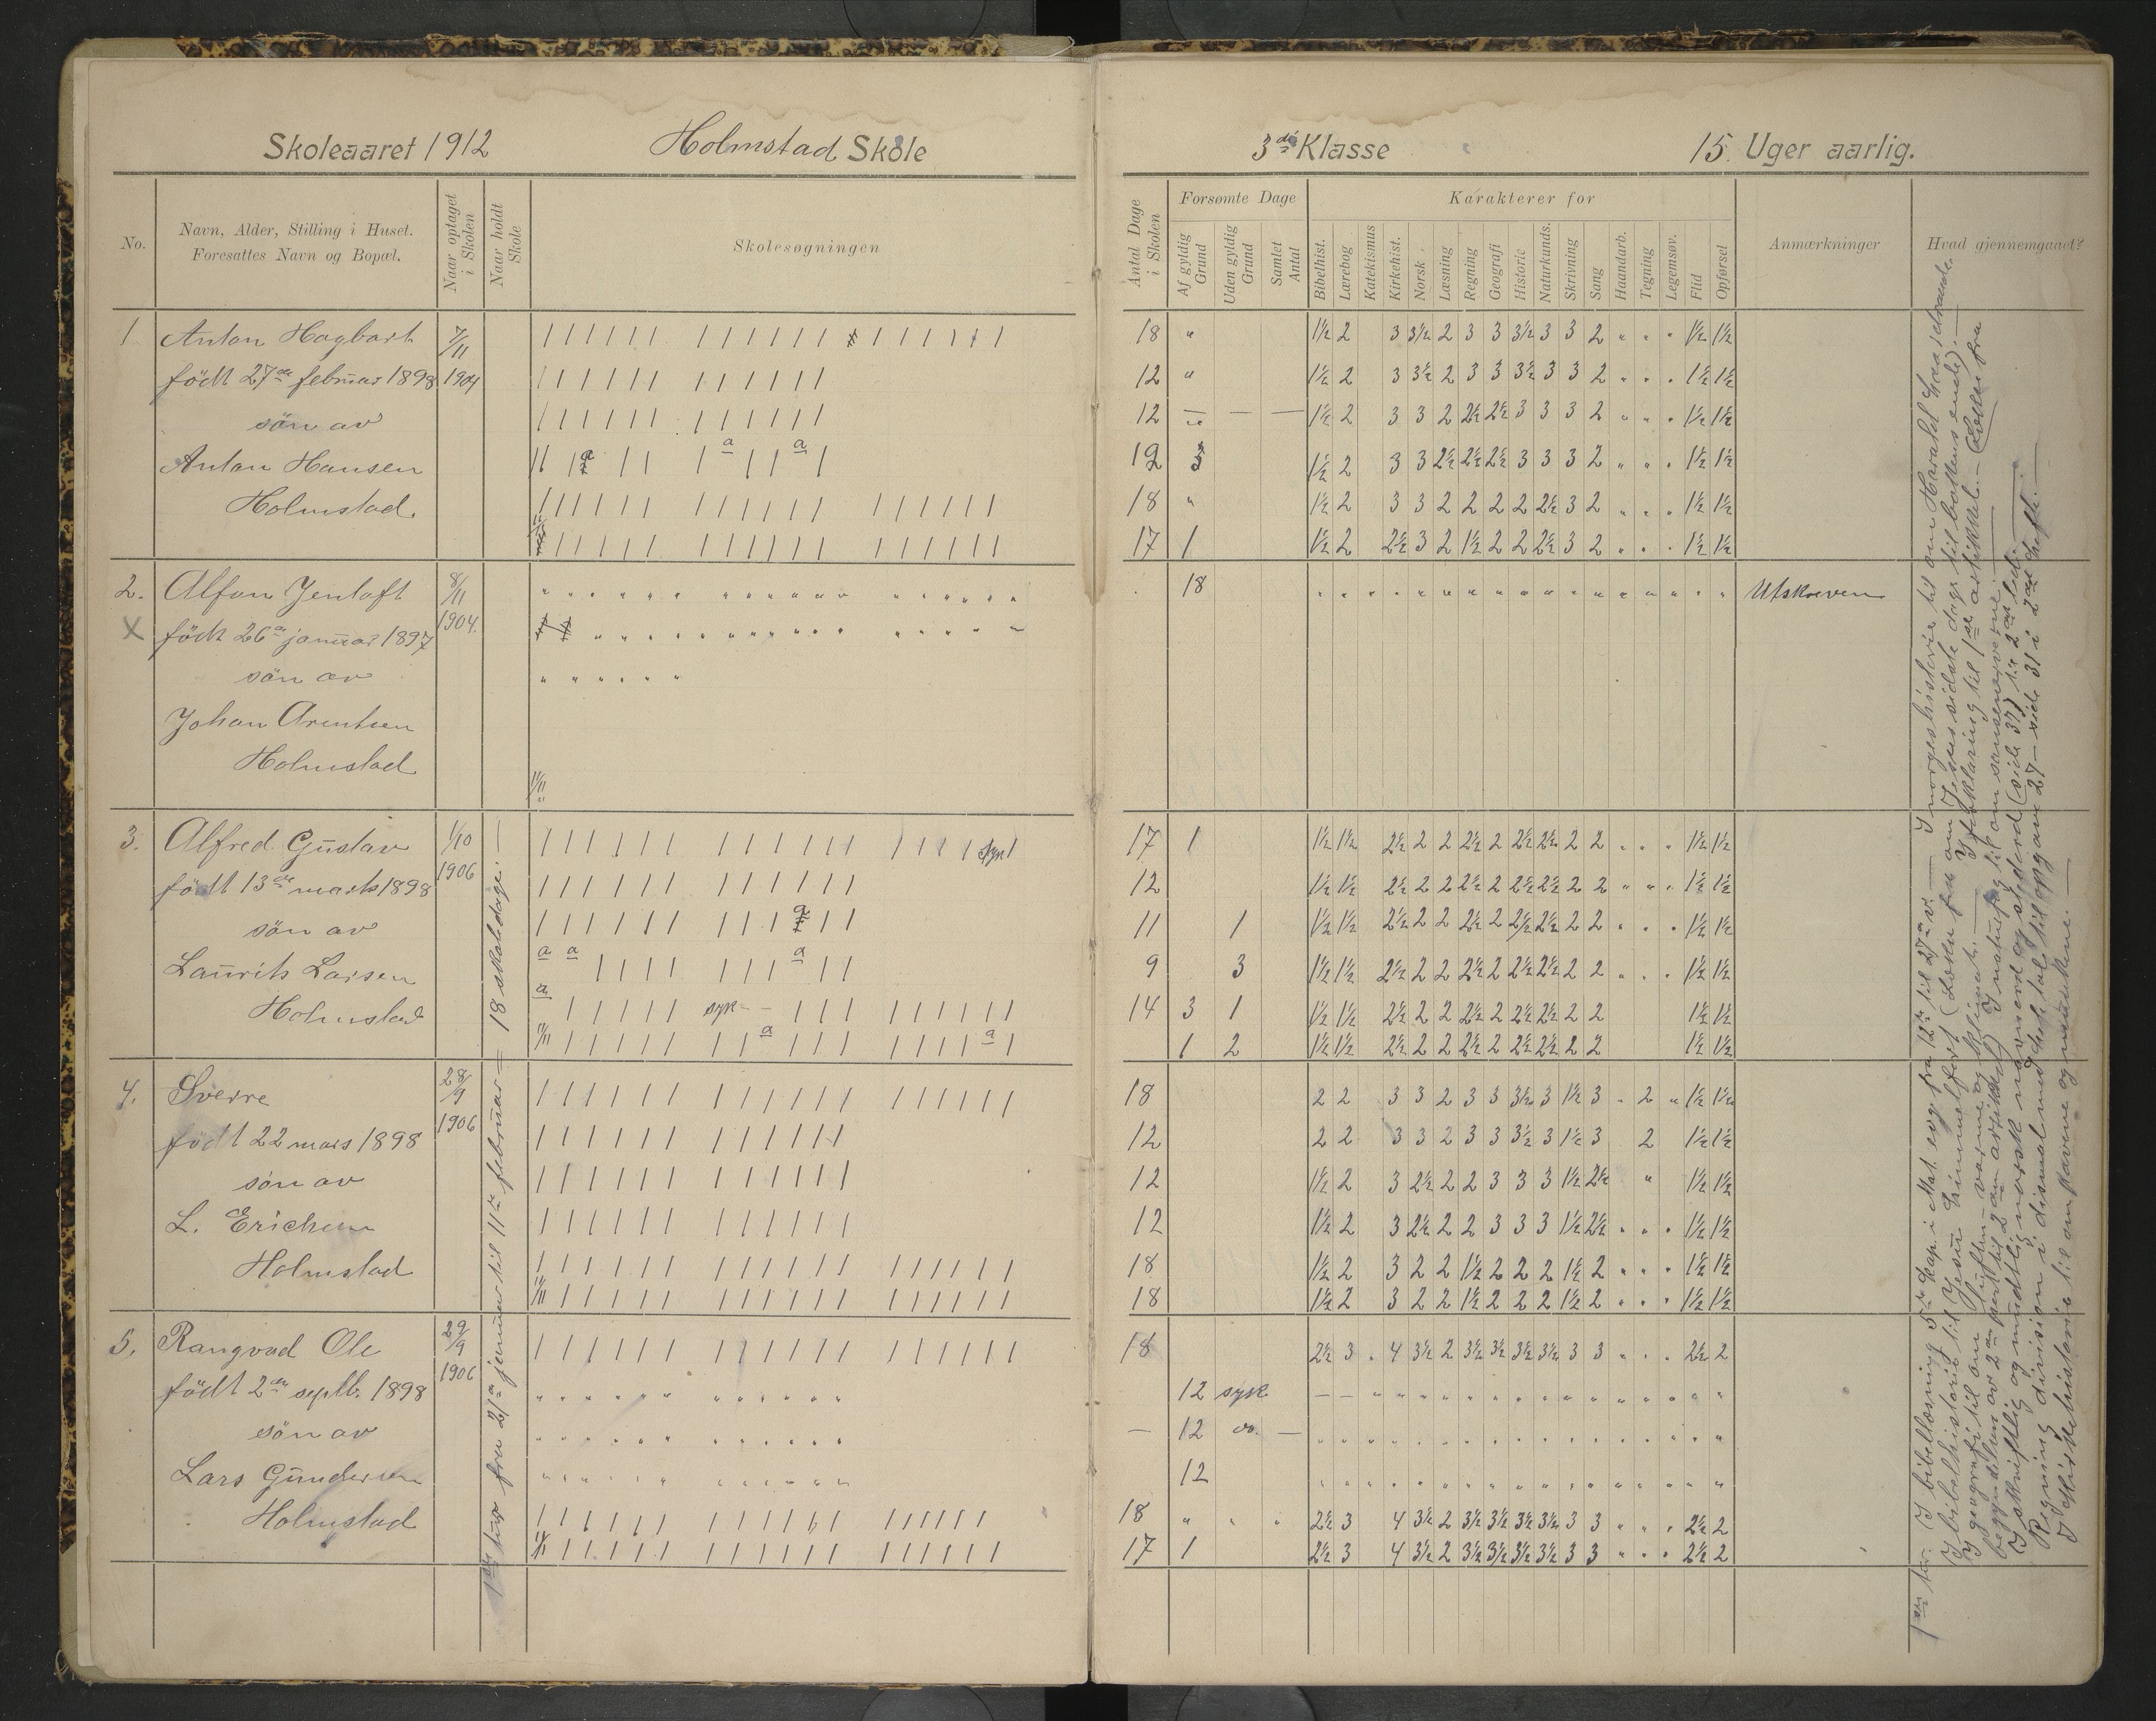 Skoleaaret 1912 Holmstad Skole
3de Klasse 15 Uger aarlig.
No.
Navn, Alder, Stilling i Huset.
Foresattes Navn og Bopæl.
Naar optaget
i Skolen
Naar holdt
Skole
Skolesøgningen
Antal Dage
i Skolen
Forsømte Dage
Af gyldig
Grund
Uden gyldig
Grund
Samlet
Antal
Karakterer for
Bibelhist.
Lærebog
Katekismus
Kirkehist.
Norsk
Læsning
Regning
Geografi
Historie
Naturkunds.
Skrivning
Sang
Haandarb.
Tegning
Legemsøv.
Flid
Opførsel
Anmærkninger
Hvad gjennemgaaet?
1 Anton Hagbart 7/11
født 27de februar 1898 1904
sön av
Anton Hansen
Holmstad.
18 " 1½ 2 3 3½ 2 3 3 3½ 3 3 2 " " " 1½ 1½
12 " 1½ 2 3 3½ 2 3 3 3½ 3 3 2 " " " 1½ 1½
12 — — — 1½ 2 3 3 2 2½ 2½ 3 3 3 2 " " " 1½ 1½
1½ 2 3 3 2½ 2½ 2½ 3 3 3 2 " " " 1½ 1½
18 " 1½ 2 3 3 2 2 2 2 2½ 3 2 " " " 1½ 1½
17 1 1½ 2 2½ 3 2 1½ 2 2 2½ 3 2 " " " 1½ 1½
2. Alfon Jentoft 8/11
X født 26de januar 1897 1904.
sön av
Johan Arentsen
Holmstad
18 Utskreven
3. Alfred Gustav 1/10
født 13de marts 1898 1906
sön av
Laurits Larsen
Holmstad
17 1 1½ 1½ 2½ 2 2 2½ 2 2½ 2½ 2 2 " " " 1½ 1½
12 1½ 1½ 2½ 2 2 2½ 2 2½ 2½ 2 2 " " " 1½ 1½
11 1 1½ 1½ 2½ 2 2 2½ 2 2½ 2½ 2 2 " " " 1½ 1½
9 3 1½ 1½ 2½ 2 2 2½ 2 2½ 2½ 2 2 " " " 1½ 1½
syk
14 3 1 1½ 1½ 2½ 2 2 2½ 2 2½ 2½ 2 2 1½ 1½
1 2 1½ 1½ 2½ 2 2 2½ 2 2½ 2½ 2 2 1½ 1½
4. Sverre 28/9
født 22 mars 1898 1906
sön av
L. Erichsen
Holmstad
18 2 2 3 3 2 3 3 3½ 3 1½ 3 " 2 " 1½ 1½
12 2 2 3 3 2 3 3 3½ 3 1½ 3 2 1½ 1½
12 1½ 2 3 2½ 2 2 3 3 3 1½ 2½ " 1½ 1½
12 1½ 2 3 2½ 2 2 3 3 3 1½ 2½ " " " 1½ 1½
18 1½ 2 3 2 2 1½ 2 2 2 1½ 2 " " " 1½ 1½
18 1½ 2 3 2 2 1½ 2 2 2 1½ 2 " " " 1½ 1½
5. Rangvad Ole 29/9
født 2den septb. 1898 1906
sön av
Lars Gundersen
Holmstad
18 2½ 3 " 4 3½ 2 3½ 3½ 3½ 3½ 3 3 " " " 2½ 2
12 syk
— 12 do. —
12
18 " " " 2½ 3 4 3½ 2 3½ 3½ 3½ 3½ 3 3 " " " 2½ 2
17 1 2½ 3 4 3½ 2 3½ 3½ 3½ 3½ 3 3 " " " 2½ 2
1ste tur fra 21de januar til 11te februar = 18 skoledage. —
1ste tur. I bibellæsning 5te kap. i Mat. evg. fra 12te til 27de v. — I norgeshistorie til om Harald Haardraade.
I bibelhistorie til Jesu himmelfart
I geografi til om luften — varme og klimat. — I forklaring til 1ste artikkel. —
I skriftlig og mundtlig norsk (side 37) til 2det led.
Regning division i 27 — side 31 i 2det hefte. —